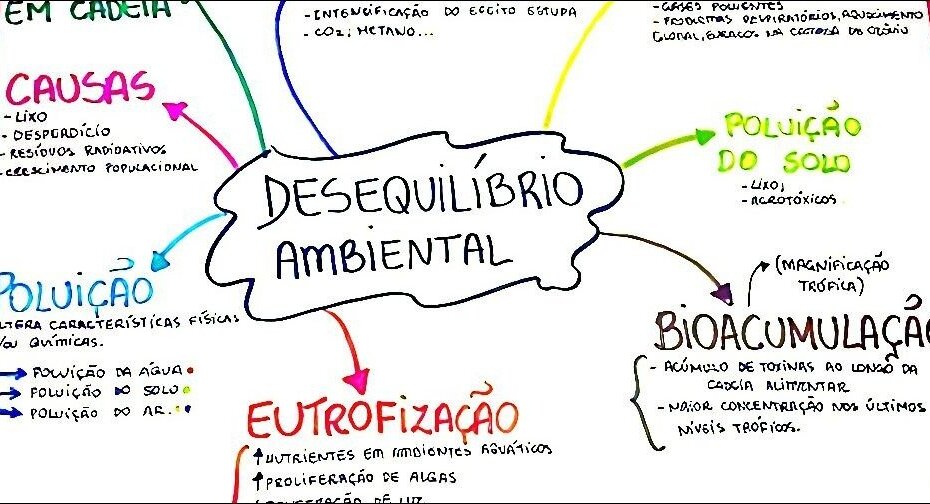 EM CADEIA
- INTENSIFICAÇÃO DO EFEITO ESTUFA
- CO₂, METANO...
- GASES POLUENTES
- PROBLEMAS RESPIRATÓRIOS, AQUECIMENTO
GLOBAL, BURACOS NA CAMADA DE OZÔNIO
CAUSAS
- LIXO
- DESPERDÍCIO
- RESÍDUOS RADIOATIVOS
- CRESCIMENTO POPULACIONAL
DESEQUILÍBRIO
AMBIENTAL
POLUIÇÃO
DO SOLO
- LIXO;
- AGROTÓXICOS
POLUIÇÃO
ALTERA CARACTERÍSTICAS FÍSICAS
E/OU QUÍMICAS.
→ POLUIÇÃO DA ÁGUA
→ POLUIÇÃO DO SOLO
→ POLUIÇÃO DO AR.
(MAGNIFICAÇÃO
TRÓFICA)
BIOACUMULAÇÃO
- ACÚMULO DE TOXINAS AO LONGO DA
CADEIA ALIMENTAR
- MAIOR CONCENTRAÇÃO NOS ÚLTIMOS
NÍVEIS TRÓFICOS.
EUTROFIZAÇÃO
↑ NUTRIENTES EM AMBIENTES AQUÁTICOS
↑ PROLIFERAÇÃO DE ALGAS
DE LUZ